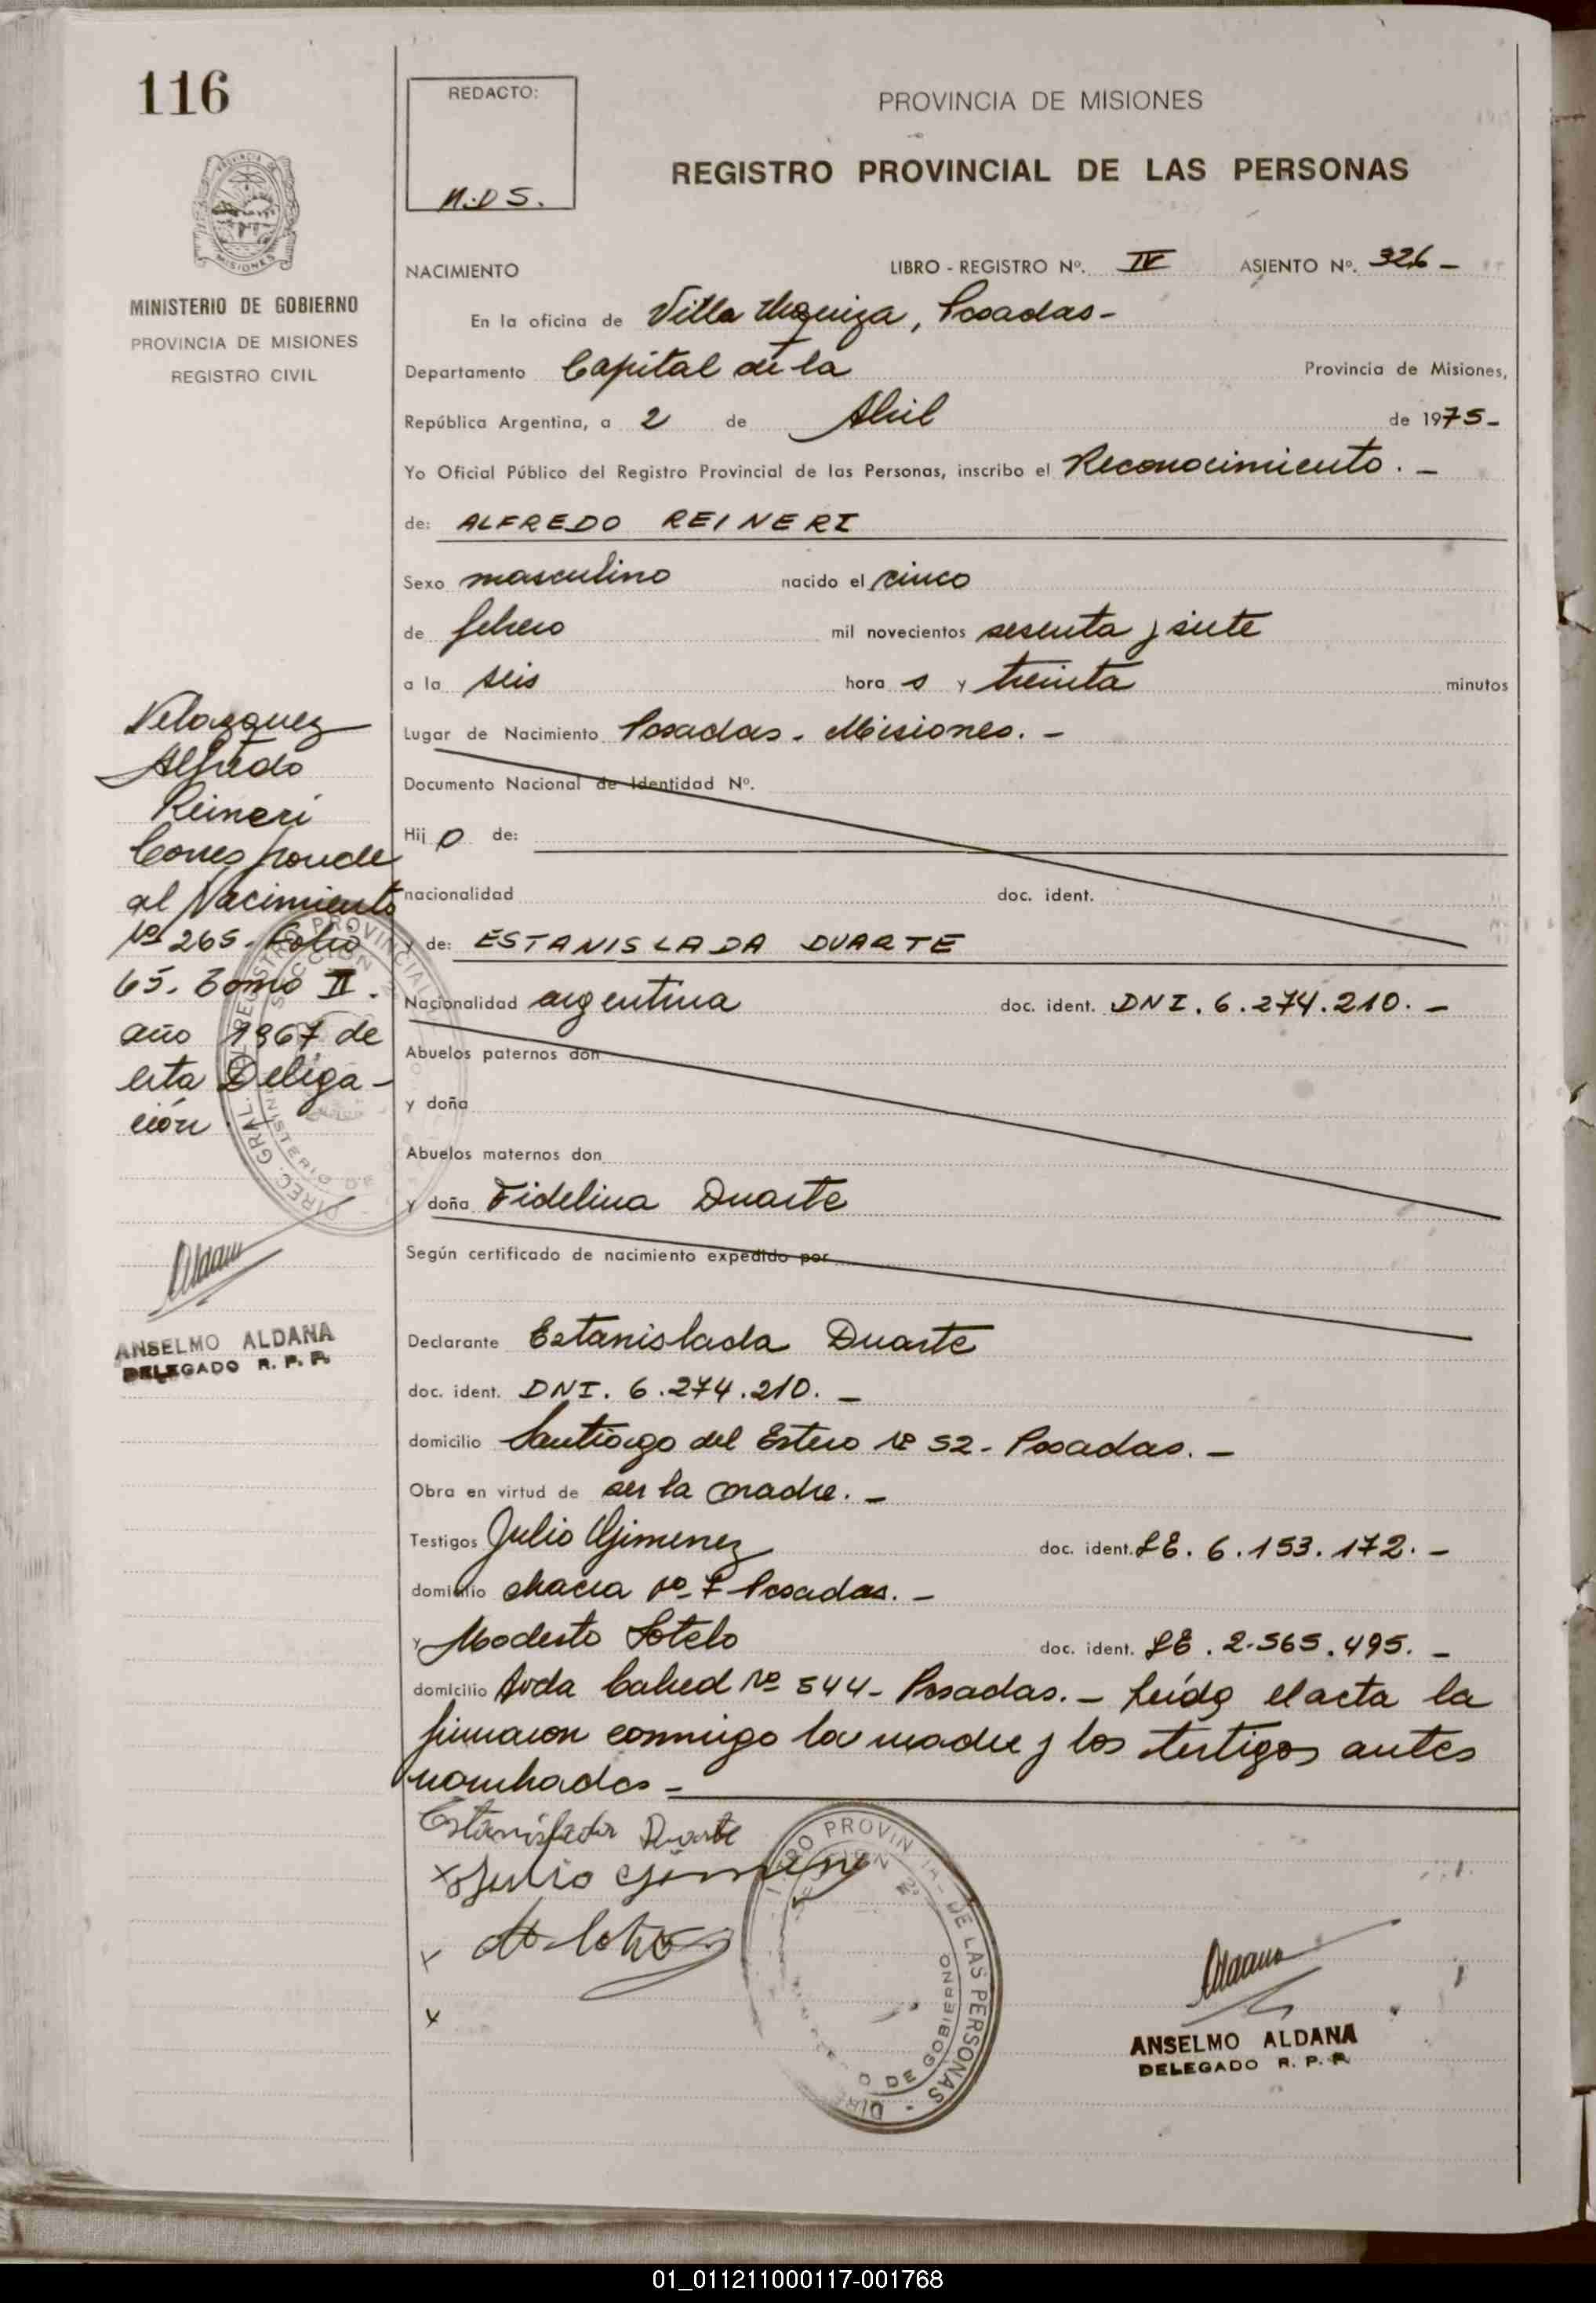 116
REDACTO:
N.DS.
PROVINCIA DE MISIONES
REGISTRO PROVINCIAL DE LAS PERSONAS
MINISTERIO DE GOBIERNO
PROVINCIA DE MISIONES
REGISTRO CIVIL
NACIMIENTO LIBRO - REGISTRO Nº. IV ASIENTO Nº. 326 -
En la oficina de Villa Urquiza, Posadas -
Departamento Capital de la Provincia de Misiones,
República Argentina, a 2 de Abril de 1975 -
Yo Oficial Público del Registro Provincial de las Personas, inscribo el Reconocimiento. -
de: ALFREDO REINERI
Sexo masculino nacido el cinco
de febrero mil novecientos sesenta y siete
a la seis hora s y treinta minutos
Lugar de Nacimiento Posadas - Misiones. -
Documento Nacional de Identidad Nº.
Hij o de:
nacionalidad doc. ident.
y de: ESTANISLADA DUARTE
Nacionalidad argentina doc. ident. DNI. 6.274.210. -
Abuelos paternos don
y doña
Abuelos maternos don
y doña Fidelina Duarte
Según certificado de nacimiento expedido por
Declarante Estanislada Duarte
doc. ident. DNI. 6.274.210. -
domicilio Santiago del Estero Nº 52 - Posadas. -
Obra en virtud de ser la madre. -
Testigos Julio Gimenez doc. ident. LE. 6.153.172. -
domicilio chacra Nº Posadas. -
y Modesto Sotelo doc. ident. LE. 2.565.495. -
domicilio Avda Cabred Nº 544 - Posadas. - Leída el acta la
firmaron conmigo la madre y los testigos antes
nombrados -
Velazquez
Alfredo
Reineri
Corresponde
al Nacimiento
Nº 265 - Folio
65. Tomo II.
año 1967 de
esta Delega-
ción.
ANSELMO ALDANA
DELEGADO R. P. P.
Estanislada Duarte
x Julio Gimenez
x
x
PROVIN DE LAS PERSONAS - DIRE
DE GOBIERNO
ANSELMO ALDANA
DELEGADO R. P. P.
01_011211000117-001768